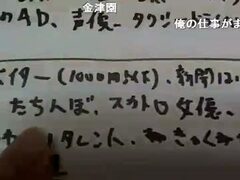 金津園
俺の仕事がま
のAD、声優、タクシー
イター(1000円以下)、新聞はい
たちんぼ、スカトロ女優、
タレント、